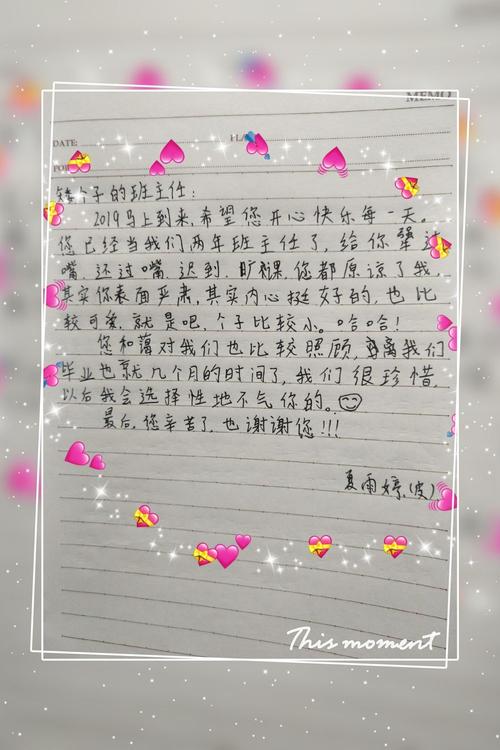 MEMO
DATE:
矮个子的班主任：
2019马上到来，希望您开心快乐每一天。
您已经当我们两年班主任了，给你犟过
嘴，还过嘴，迟到，旷课，您都原谅了我。
其实你表面严肃，其实内心挺好的，也比
较可爱，就是吧，个子比较小。哈哈！
您和蔼对我们也比较照顾，离我们
毕业也就几个月的时间了，我们很珍惜，
以后我会选择性地不气你的。
最后，您辛苦了，也谢谢您！！！
夏雨婷（皮）
This moment